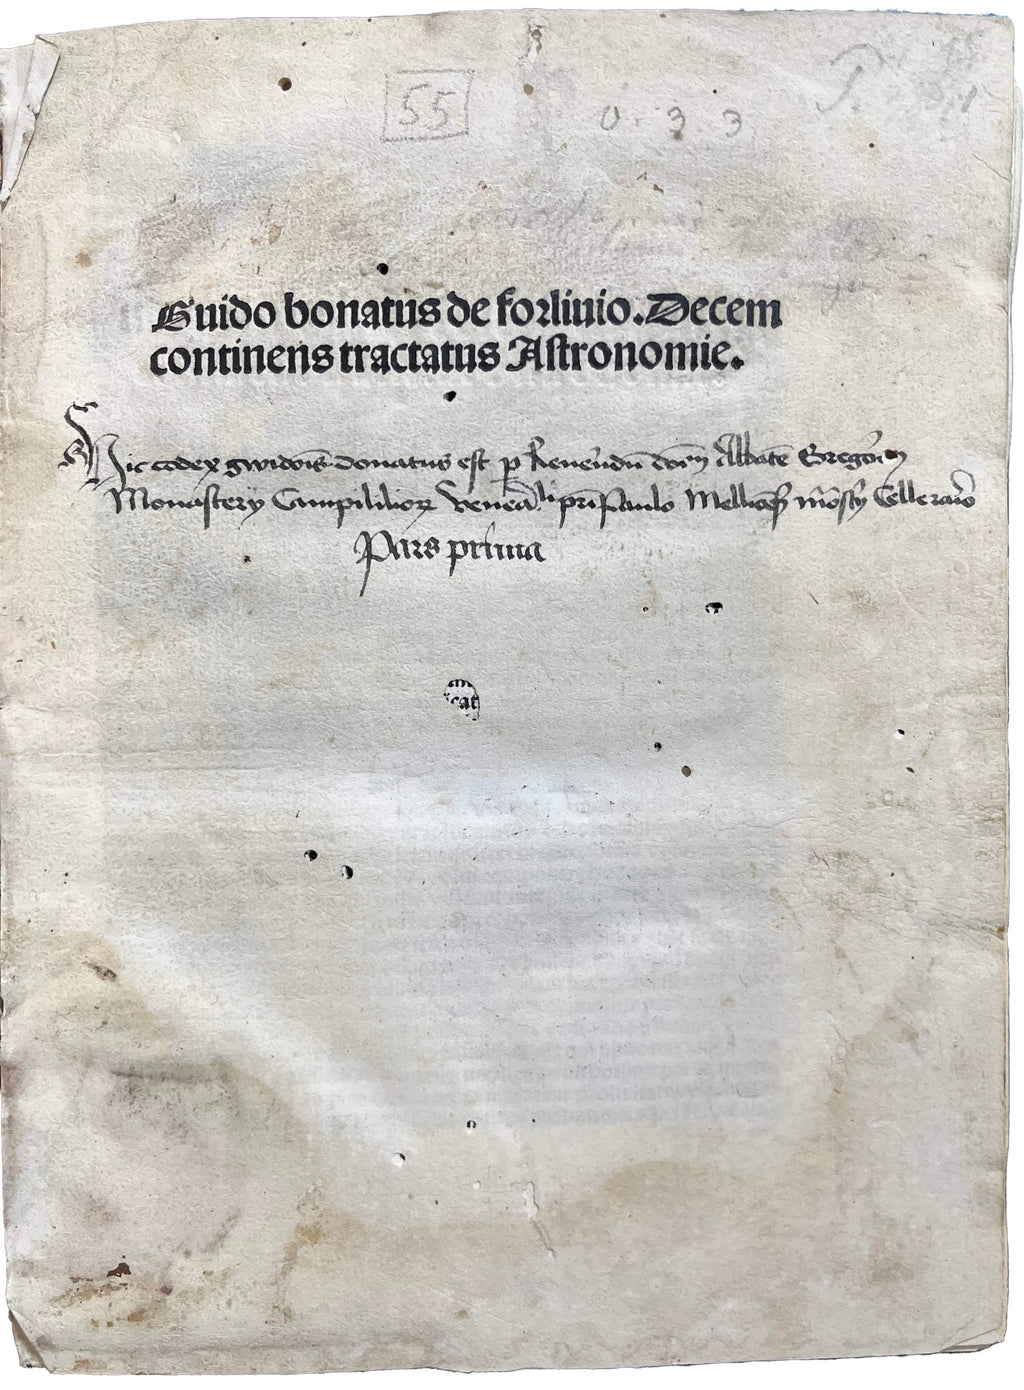 55
0 3 3
Guido bonatus de forliuio. Decem
continens tractatus Astronomie.
Hic codex gwidonis donatus est p Reuerendū dom̄ Abbatē Gregoriū
Monastery Campililioꝝ Venēa.li pr̄i Paulo Mellicen̄ Celleraro
Pars prima
cat